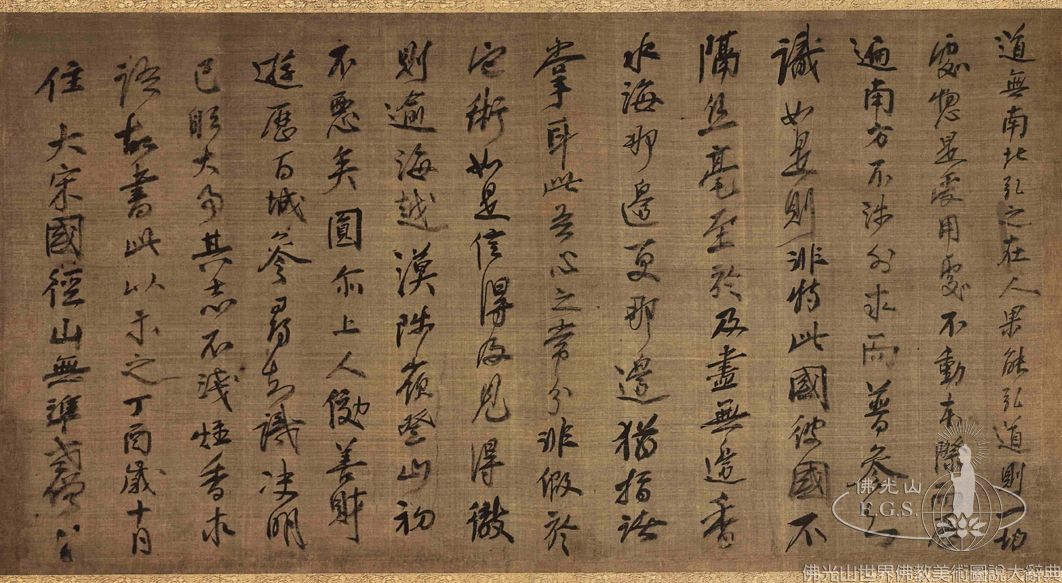 道無南北弘之在人果能弘道則一切
處惣是受用處不動本際而歷
遍南方不涉外求而普參知
識如是則非特此國彼國不
隔絲毫至於及盡無邊香
水海那邊更那邊猶指諸
掌耳此吾心之常分非假於
它術如是信得及見得徹
則逾海越漠陟嶺登山初
不惡矣圓尒上人効善財
遊歷百城參尋知識決明
己躬大事其志不淺炷香求
語故書此以示之丁酉歲十月
住大宋國徑山無準老僧
佛光山
F.G.S.
佛光山世界佛教美術圖說大辭典